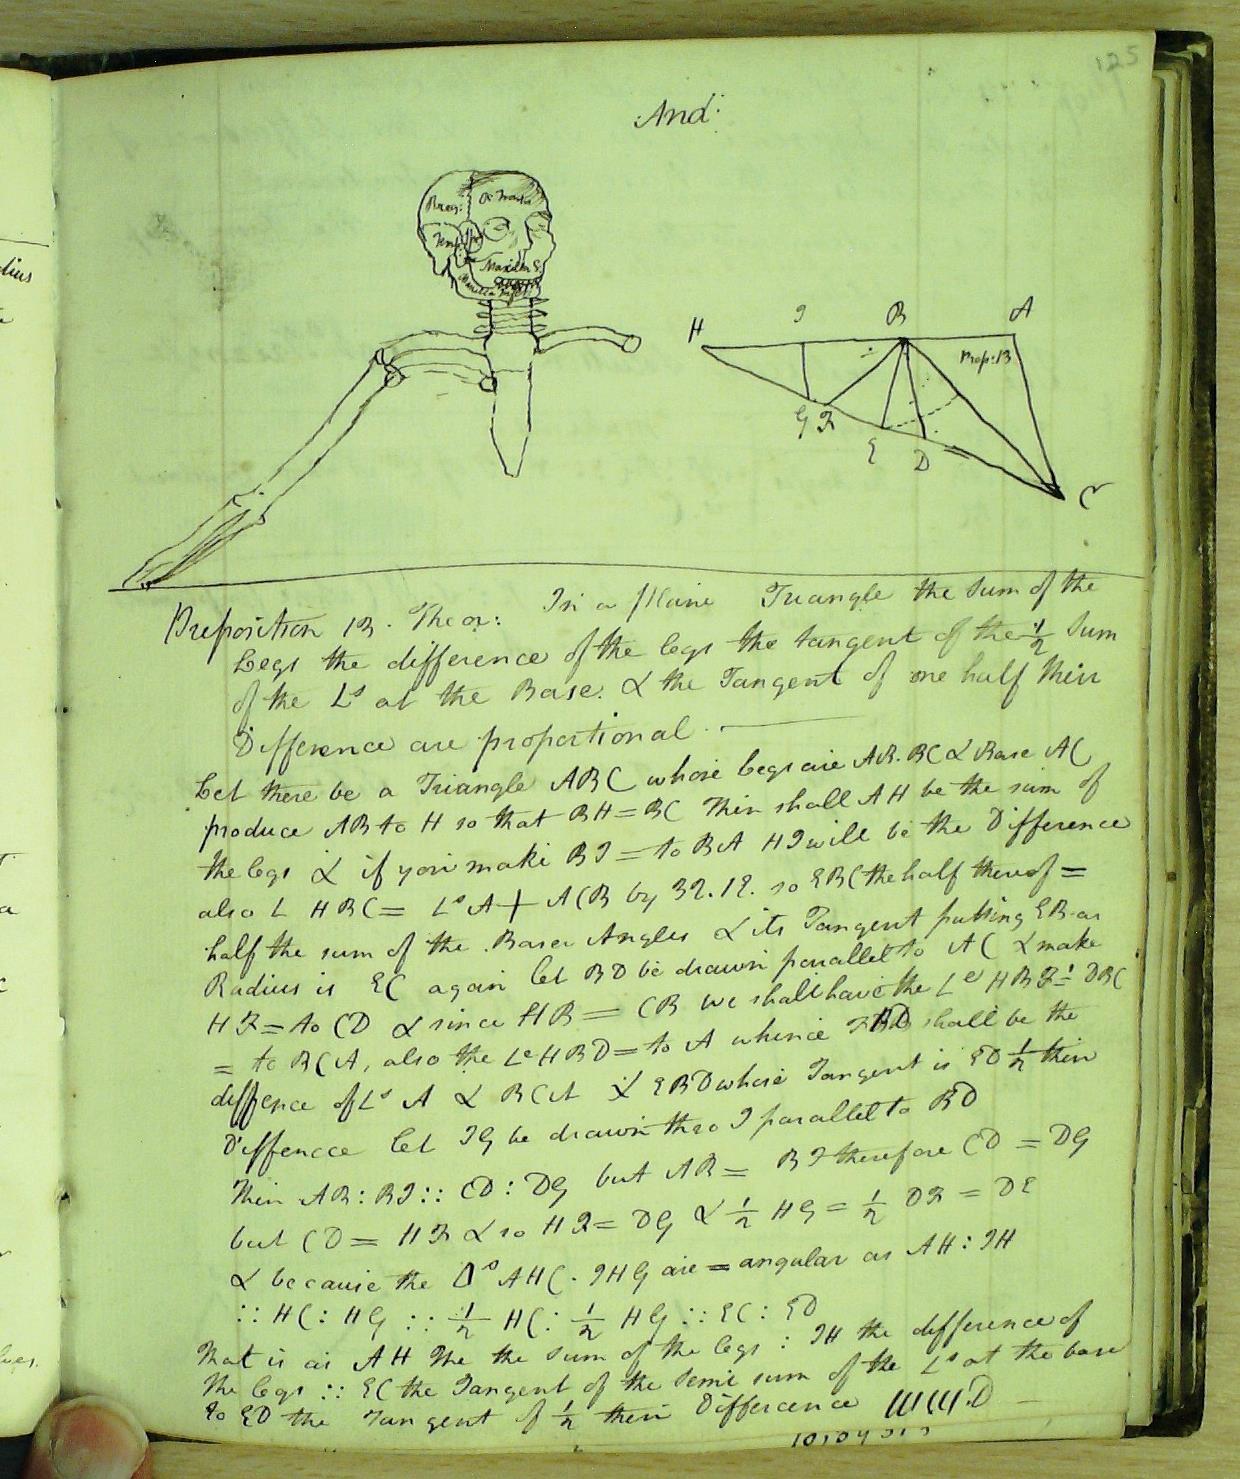 125
And:
Temp
Maxilla S.
H I B A
Prop: 13
G F
E D
C
Preposition 13. Theor: In a plane Triangle the sum of the
Legs the difference of the legs the tangent of the ½ Sum
of the Ls at the Base. & the Tangent of one half their
Difference are proportional.
Let there be a Triangle ABC whose legs are AB. BC & Base AC
produce AB to H so that BH = BC Then shall AH be the sum of
the legs & if you make BI = to BA HI will be the Difference
also L HBC = Ls A + ACB by 32.1E. so EBC the half thereof =
half the sum of the Bases Angles & its Tangent putting EB as
Radius is EC again let BD be drawn parallel to AC & make
HF = to CD & since HB = CB we shall have the Le HBF = DBC
= to BCA, also the Le HBD = to A whence FBD shall be the
diffence of Ls A & BCA & EBD whose Tangent is ED ½ their
Diffencce let IG be drawn thro I parallel to BD
Then AB : BI :: CD : DG but AB = BI therefore CD = DG
but CD = HF & so HF = DG & ½ HG = ½ DF = DE
& because the Δs AHC. IHG are = angular as AH : IH
:: HC : HG :: ½ HC : ½ HG :: EC : ED
That is as AH the the sum of the legs : IH the difference of
the legs :: EC the Tangent of the semi sum of the Ls at the base
to ED the Tangent of ½ their Difference WWW.D